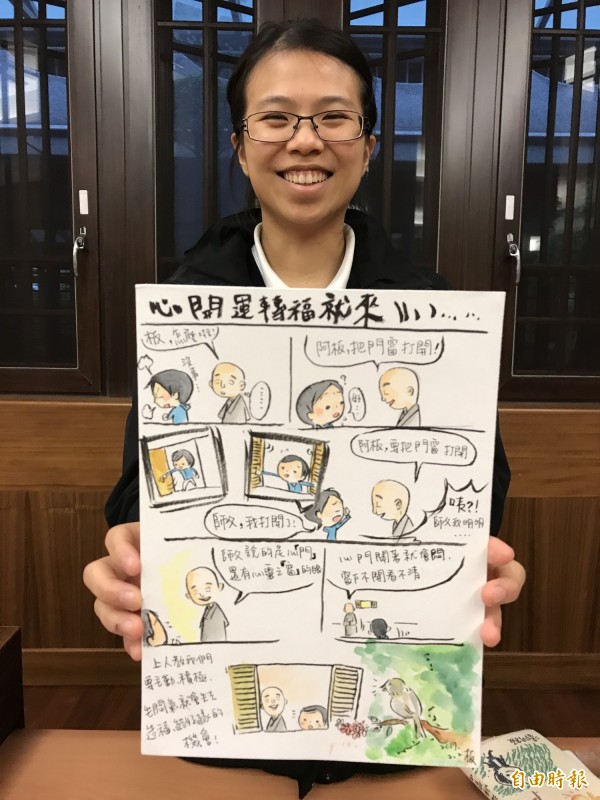 心開運轉福就來
板,怎麼啦!
沒事...
阿板,把門窗打開!
?
好...
阿板,要把門窗打開
師父,我打開了!
咦?!
師父我明明
....
師父說的是心「門」
還有心靈之「窗」
心門關著就會悶,
窗下不開看不清
上人教我們
要主動、積極.
造福、
機會!
板
自由時報